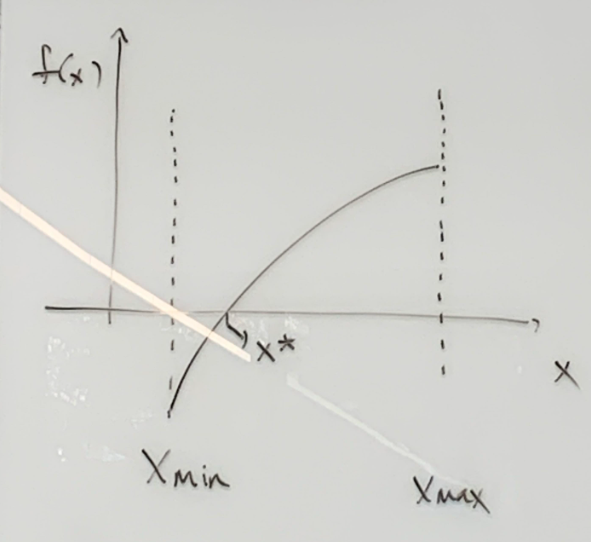 f(x)
x*
x
Xmin
Xmax